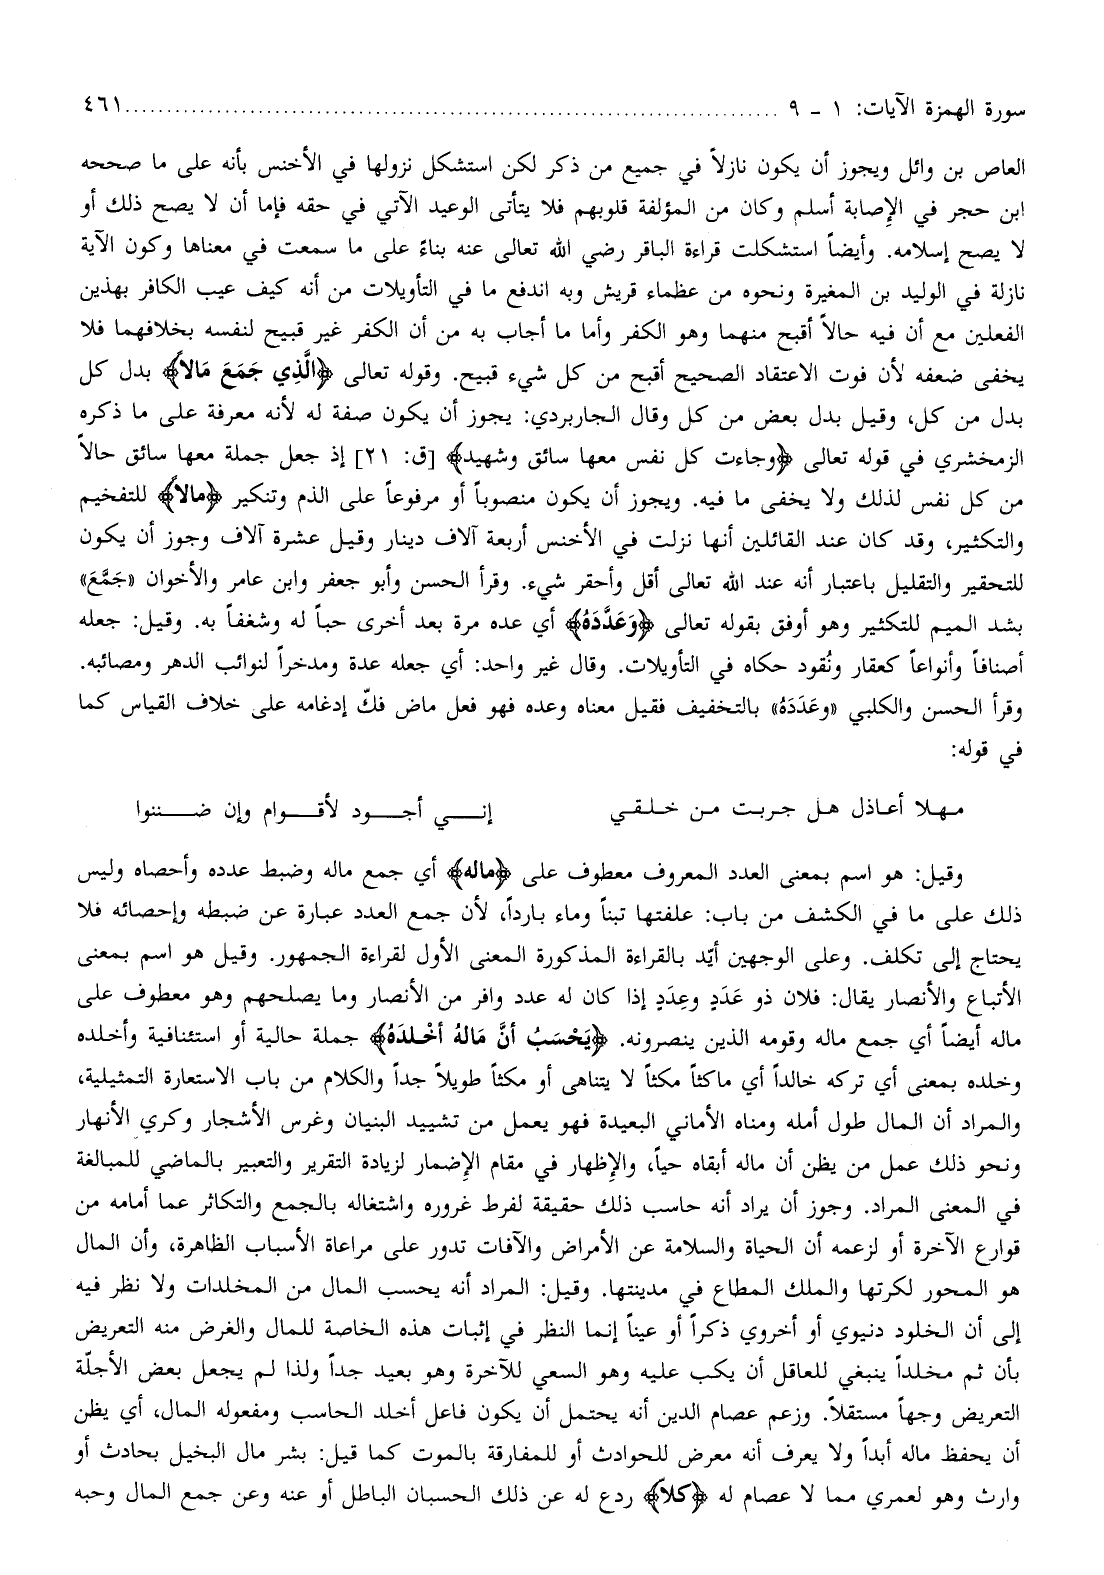 سورة الهمزة الآيات: ١ - ٩ ........................................................................ ٤٦١
العاص بن وائل ويجوز أن يكون نازلاً في جميع من ذكر لكن استشكل نزولها في الأخنس بأنه على ما صححه
ابن حجر في الإصابة أسلم وكان من المؤلفة قلوبهم فلا يتأتى الوعيد الآتي في حقه فإما أن لا يصح ذلك أو
لا يصح إسلامه. وأيضاً استشكلت قراءة الباقر رضي الله تعالى عنه بناءً على ما سمعت في معناها وكون الآية
نازلة في الوليد بن المغيرة ونحوه من عظماء قريش وبه اندفع ما في التأويلات من أنه كيف عيب الكافر بهذين
الفعلين مع أن فيه حالاً أقبح منهما وهو الكفر وأما ما أجاب به من أن الكفر غير قبيح لنفسه بخلافهما فلا
يخفى ضعفه لأن فوت الاعتقاد الصحيح أقبح من كل شيء قبيح. وقوله تعالى ﴿الَّذِي جَمَعَ مَالاً﴾ بدل كل
بدل من كل، وقيل بدل بعض من كل وقال الجاربردي: يجوز أن يكون صفة له لأنه معرفة على ما ذكره
الزمخشري في قوله تعالى ﴿وجاءت كل نفس معها سائق وشهيد﴾ [ق: ٢١] إذ جعل جملة معها سائق حالاً
من كل نفس لذلك ولا يخفى ما فيه. ويجوز أن يكون منصوباً أو مرفوعاً على الذم وتنكير ﴿مالاً﴾ للتفخيم
والتكثير، وقد كان عند القائلين أنها نزلت في الأخنس أربعة آلاف دينار وقيل عشرة آلاف وجوز أن يكون
للتحقير والتقليل باعتبار أنه عند الله تعالى أقل وأحقر شيء. وقرأ الحسن وأبو جعفر وابن عامر والأخوان «جَمَّعَ»
بشد الميم للتكثير وهو أوفق بقوله تعالى ﴿وَعَدَّدَهُ﴾ أي عده مرة بعد أخرى حباً له وشغفاً به. وقيل: جعله
أصنافاً وأنواعاً كعقار ونُقود حكاه في التأويلات. وقال غير واحد: أي جعله عدة ومدخراً لنوائب الدهر ومصائبه.
وقرأ الحسن والكلبي «وعَدَدَهُ» بالتخفيف فقيل معناه وعده فهو فعل ماض فكّ إدغامه على خلاف القياس كما
في قوله:
مهلا أعاذل هل جربت من خلقي    إني أجود لأقوام وإن ضننوا
وقيل: هو اسم بمعنى العدد المعروف معطوف على ﴿ماله﴾ أي جمع ماله وضبط عدده وأحصاه وليس
ذلك على ما في الكشف من باب: علفتها تبناً وماء بارداً، لأن جمع العدد عبارة عن ضبطه وإحصائه فلا
يحتاج إلى تكلف. وعلى الوجهين أيّد بالقراءة المذكورة المعنى الأول لقراءة الجمهور. وقيل هو اسم بمعنى
الأتباع والأنصار يقال: فلان ذو عَدَدٍ وعِدَدٍ إذا كان له عدد وافر من الأنصار وما يصلحهم وهو معطوف على
ماله أيضاً أي جمع ماله وقومه الذين ينصرونه. ﴿يَحْسَبُ أَنَّ مَالهُ أخْلدَهُ﴾ جملة حالية أو استئنافية وأخلده
وخلده بمعنى أي تركه خالداً أي ماكثاً مكثاً لا يتناهى أو مكثاً طويلاً جداً والكلام من باب الاستعارة التمثيلية،
والمراد أن المال طول أمله ومناه الأماني البعيدة فهو يعمل من تشييد البنيان وغرس الأشجار وكري الأنهار
ونحو ذلك عمل من يظن أن ماله أبقاه حياً، والإظهار في مقام الإضمار لزيادة التقرير والتعبير بالماضي للمبالغة
في المعنى المراد. وجوز أن يراد أنه حاسب ذلك حقيقة لفرط غروره واشتغاله بالجمع والتكاثر عما أمامه من
قوارع الآخرة أو لزعمه أن الحياة والسلامة عن الأمراض والآفات تدور على مراعاة الأسباب الظاهرة، وأن المال
هو المحور لكرتها والملك المطاع في مدينتها. وقيل: المراد أنه يحسب المال من المخلدات ولا نظر فيه
إلى أن الخلود دنيوي أو أخروي ذكراً أو عيناً إنما النظر في إثبات هذه الخاصة للمال والغرض منه التعريض
بأن ثم مخلداً ينبغي للعاقل أن يكب عليه وهو السعي للآخرة وهو بعيد جداً ولذا لم يجعل بعض الأجلّة
التعريض وجهاً مستقلاً. وزعم عصام الدين أنه يحتمل أن يكون فاعل أخلد الحاسب ومفعوله المال، أي يظن
أن يحفظ ماله أبداً ولا يعرف أنه معرض للحوادث أو للمفارقة بالموت كما قيل: بشر مال البخيل بحادث أو
وارث وهو لعمري مما لا عصام له ﴿كلا﴾ ردع له عن ذلك الحسبان الباطل أو عنه وعن جمع المال وحبه